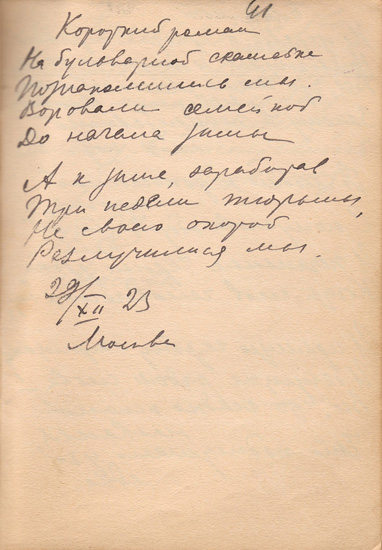 41
Короткий роман
На бульварной скамейке
Познакомились мы.
Воровали семейкой
До начала зимы
А к зиме, заработав
Три недели тюрьмы,
Не своею охотой
Разлучилися мы.
29/XII 23
Москва